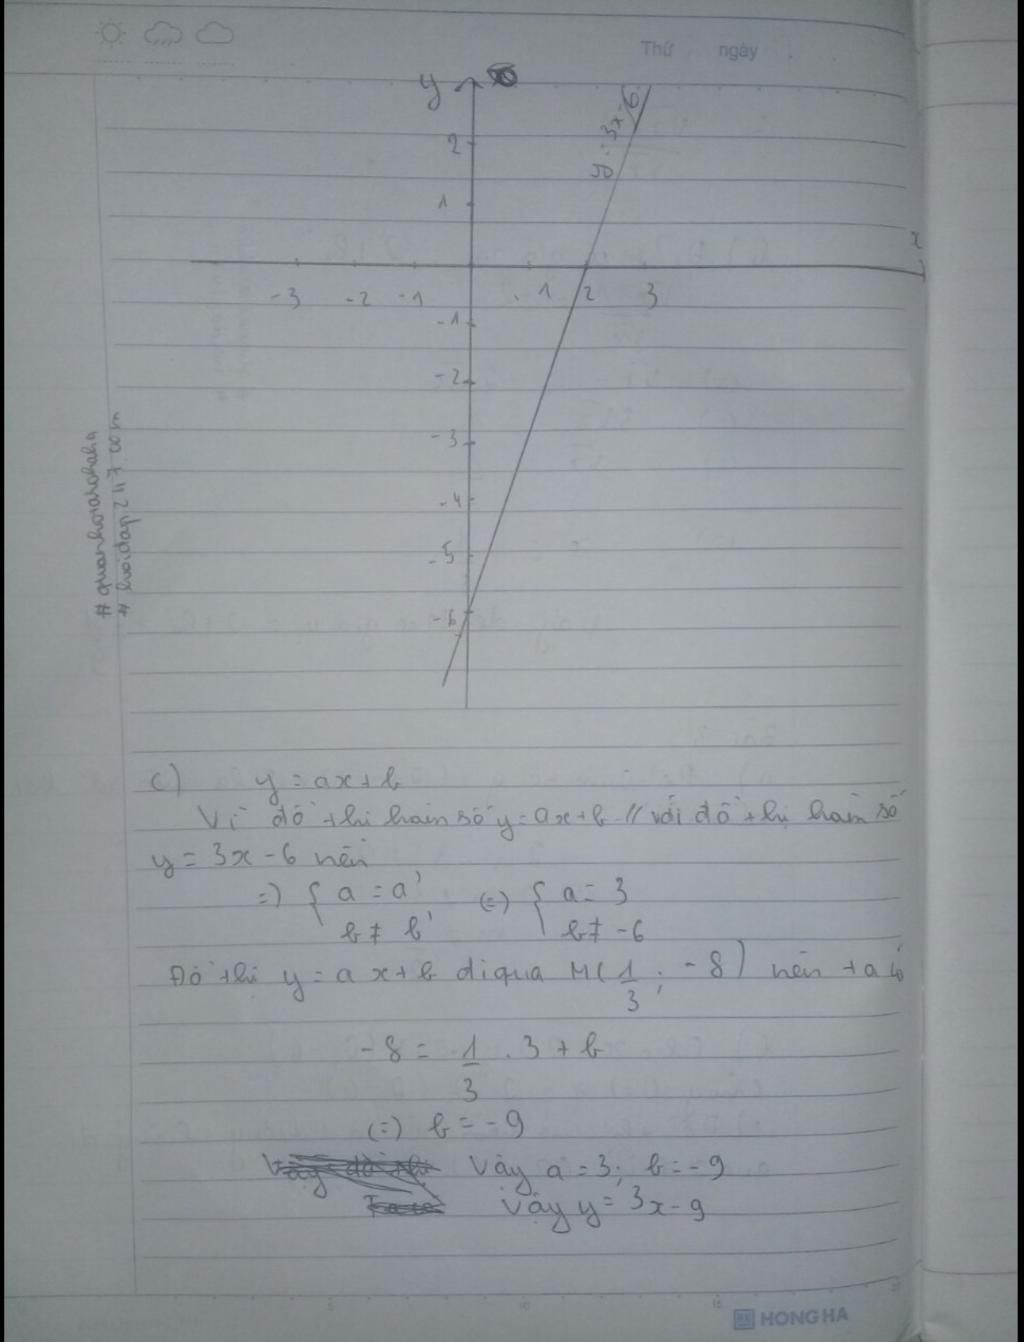 Thứ ngày
y
y = 3x - 6
2
1
x
-3 -2 -1 1 2 3
-1
-2
-3
-4
-5
-6
# quanhotahohaha
# hoidap247.com
c) y = ax + b
Vì đồ thị hàm số y = ax + b // với đồ thị hàm số
y = 3x - 6 nên
=> { a = a' (=) { a = 3
b ≠ b' b ≠ -6
Đồ thị y = ax + b đi qua M( 1/3 ; -8) nên ta có
-8 = 1/3 . 3 + b
(=) b = -9
Vậy a = 3; b = -9
Vậy y = 3x - 9
5 10 15
HONG HA